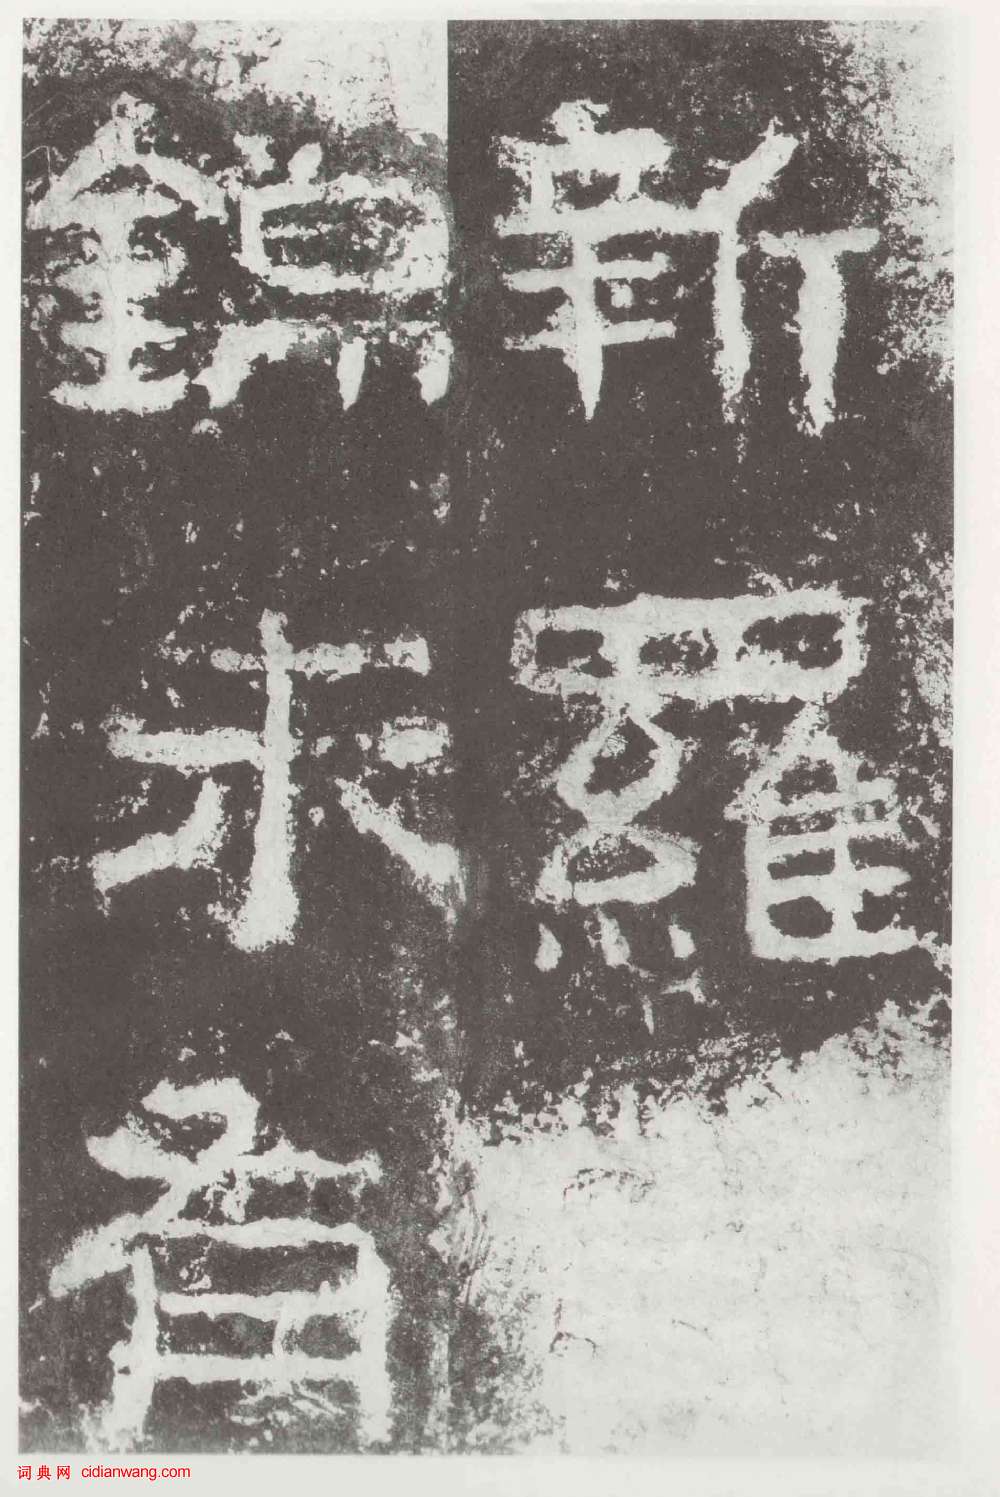 新羅
錦未有
词典网 cidianwang.com